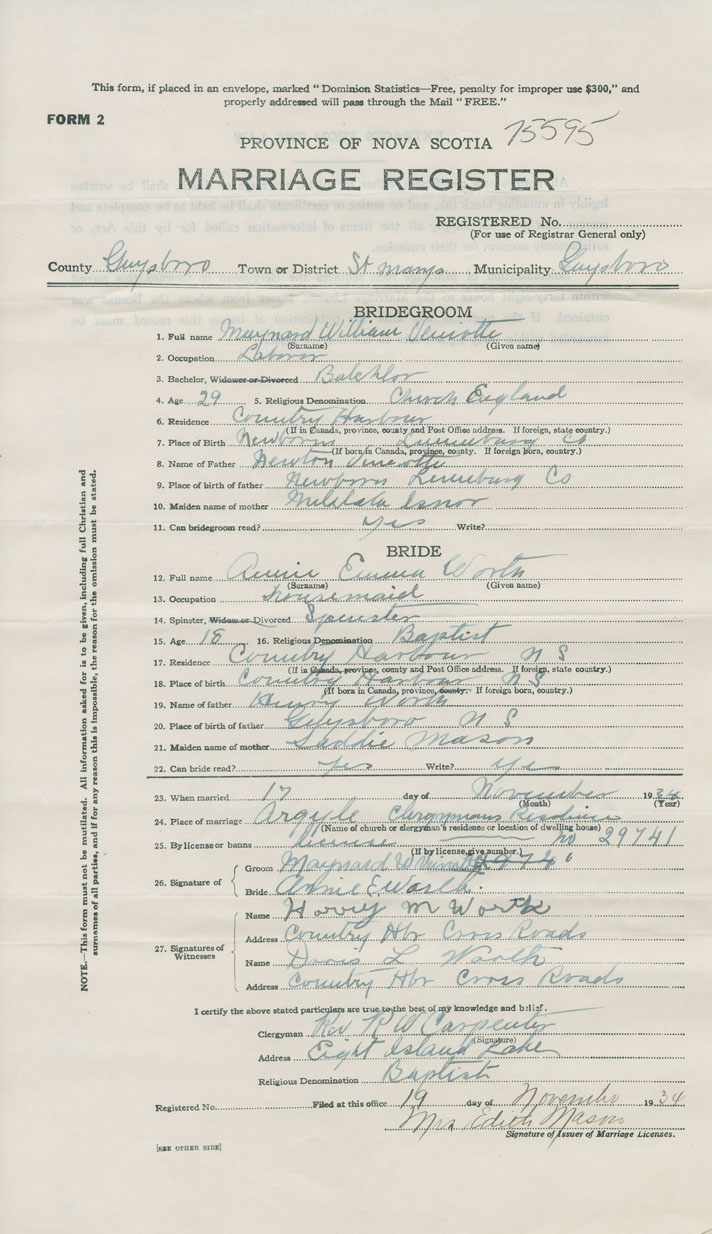 This form, if placed in an envelope, marked "Dominion Statistics—Free, penalty for improper use $300," and
properly addressed will pass through the Mail "FREE."
FORM 2
75595
PROVINCE OF NOVA SCOTIA
MARRIAGE REGISTER
REGISTERED No.
(For use of Registrar General only)
County Guysboro Town or District St marys Municipality Guysboro
BRIDEGROOM
1. Full name Maynard William Veniotte
(Surname) (Given name)
2. Occupation Laboror
3. Bachelor, Widower or Divorced Batchlor
4. Age 29 5. Religious Denomination Church England
6. Residence Country Harbour
(If in Canada, province, county and Post Office address. If foreign, state country.)
7. Place of Birth Newborns Lunenburg Co
(If born in Canada, province, county. If foreign born, country.)
8. Name of Father Newton Veniotte
9. Place of birth of father Newborns Lunenburg Co
10. Maiden name of mother
11. Can bridegroom read? yes Write?
BRIDE
12. Full name Annie Emma Worth
(Surname) (Given name)
13. Occupation housemaid
14. Spinster, Widow or Divorced Spinster
15. Age 18 16. Religious Denomination Baptist
17. Residence Country Harbour N S
(If in Canada, province, county and Post Office address. If foreign, state country.)
18. Place of birth Country Harbour N S
(If born in Canada, province, county. If foreign born, country.)
19. Name of father Henry Worth
20. Place of birth of father Guysboro N S
21. Maiden name of mother Saddie Mason
22. Can bride read? yes Write? yes
23. When married 17 day of November 1934
(Month) (Year)
24. Place of marriage Argyle Clergymans Residence
(Name of church or clergyman's residence or location of dwelling house)
25. By license or banns license no 29741
(If by license, give number.)
26. Signature of
Groom Maynard W Veniotte
Bride Annie E Worth.
27. Signatures of Witnesses
Name Harry M Worth
Address Country Hbr Cross Roads
Name Doris L Worth
Address Country Hbr Cross Roads
I certify the above stated particulars are true to the best of my knowledge and belief.
Clergyman Rev R W Carpenter
(Signature)
Address Eight Island Lake
Religious Denomination Baptist
Registered No. Filed at this office 19 day of November 1934
Mrs Edith Mason
Signature of Issuer of Marriage Licenses.
[SEE OTHER SIDE]
NOTE.—This form must not be mutilated. All information asked for is to be given, including full Christian and
surnames of all parties, and if for any reason this is impossible, the reason for the omission must be stated.